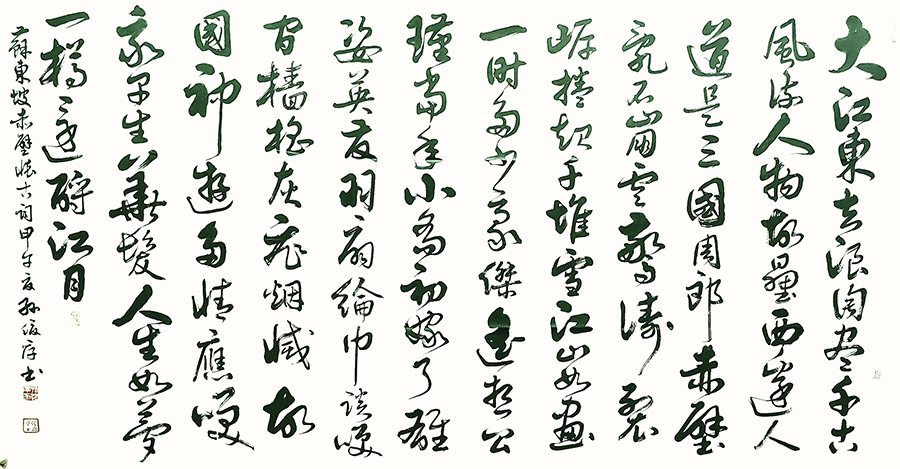 大江東去浪淘盡千古
風流人物故壘西邊人
道是三國周郎赤壁
亂石崩雲驚濤裂
岸捲起千堆雪江山如畫
一時多少豪傑遙想公
瑾當年小喬初嫁了雄
姿英發羽扇綸巾談笑
間檣櫓灰飛烟滅故
國神遊多情應笑
我早生華髮人生如夢
一樽還酹江月
蘇東坡赤壁懷古詞甲午夏孫俊書